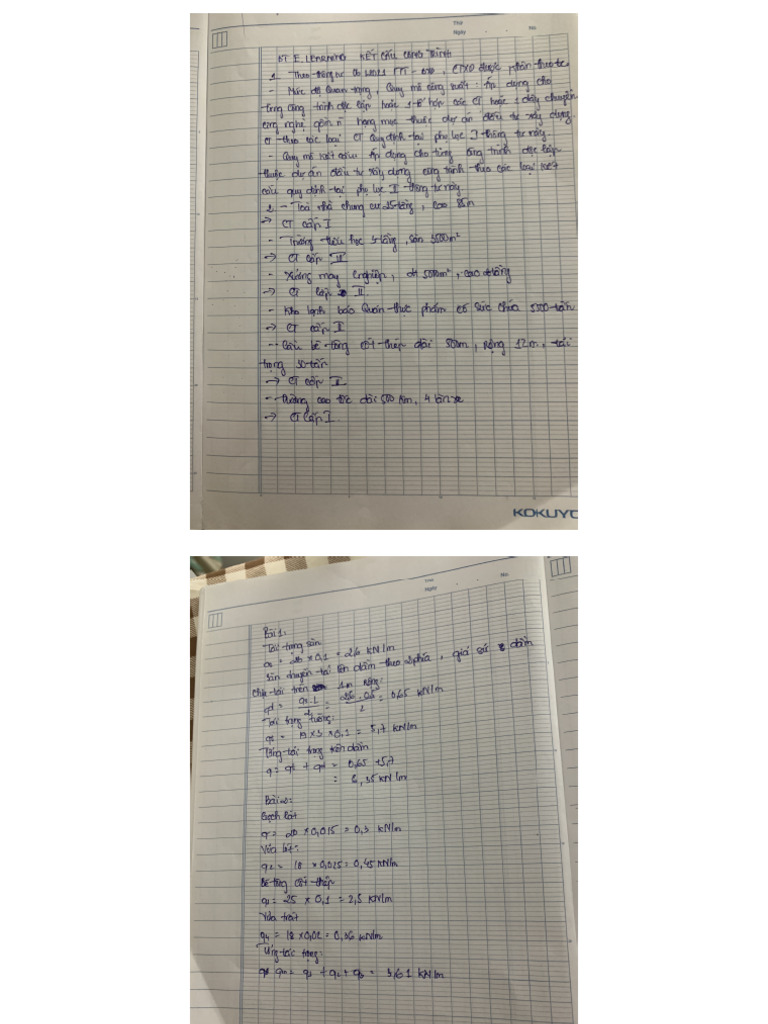 Thứ
Ngày No.
BT E. LEARNING KẾT CẤU CÔNG TRÌNH
1. Theo thông tư 06/2021 TT-BXD, CTXD được phân theo
- Mức độ quan trọng, Quy mô công suất: Áp dụng cho
từng công trình độc lập hoặc 1 tổ hợp các CT hoặc 1 dây chuyền
công nghệ gồm n hạng mục thuộc dự án đầu tư xây dựng
CT theo các loại CT Quy định tại phụ lục I thông tư này.
- Quy mô kết cấu: Áp dụng cho từng công trình độc lập
thuộc dự án đầu tư xây dựng công trình theo các loại kết
cấu quy định tại phụ lục II thông tư này
2. - Toà nhà chung cư 25 tầng, cao 85m
→ CT cấp I
- Trường tiểu học 3 tầng, sàn 3500m²
→ CT cấp
- Xưởng may nghiệp, dt 5000m², cao tầng
→ CT cấp II
- Kho lạnh bảo quản thực phẩm có sức chứa tấn
→ CT cấp II
- Cầu bê tông cốt thép dài 500m, rộng 12m, tải
trọng 30 tấn
→ CT cấp II
- Đường cao tốc dài 500 km, 4 làn xe
→ CT cấp I.
KOKUYO
Ngày No.
Bài 1:
Tải trọng sàn
= 26 x 0,1 = 2,6 kN/m
Sàn chuyển tải lên dầm theo 2 phía, giả sử dầm
chịu tải trên 1m rộng:
= 0,65 kN/m
Tải trọng tường:
= 19 x 3 x 0,1 = 5,7 kN/m
Tổng tải trọng trên dầm
q = + = 0,65 + 5,7
= 6,35 kN/m
Bài 2:
Gạch lát
q = 20 x 0,015 = 0,3 kN/m
Vữa lót:
q2 = 18 x 0,025 = 0,45 kN/m
Bê tông cốt thép
q3 = 25 x 0,1 = 2,5 kN/m
Vữa trát
q4 = 18 x 0,02 = 0,36 kN/m
Tổng tải trọng:
= + q2 + q3 = 3,61 kN/m